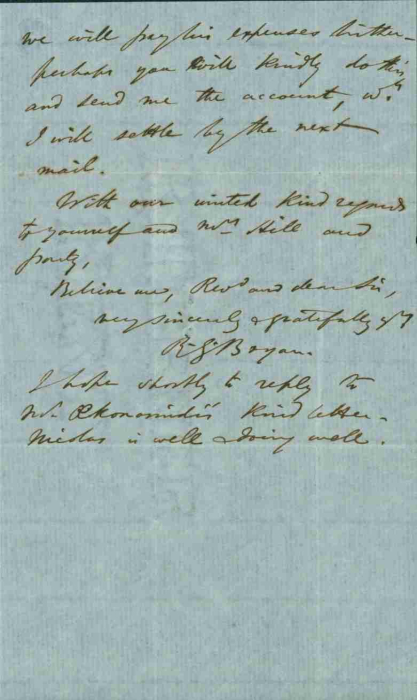 we will pay his expenses hither -
perhaps you will kindly do this
and send me the account, wh.
I will settle by the next
mail.
With our united kind regards
to yourself and Mrs Hill and
party,
Believe me, Revd and dear Sir,
very sincerely & gratefully yrs
R. G. Bryan.
I hope shortly to reply to
Mr. kind letter -
Nicolas is well & doing well.